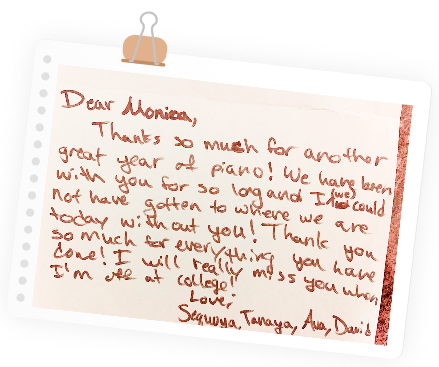 Dear Monica,
Thanks so much for another
great year of piano! We have been
with you for so long and I (we) could
not have gotton to where we are
today without you! Thank you
so much for everything you have
done! I will really miss you when
I'm off at college!
Love,
Sequoya, Tanaya, Ava, David